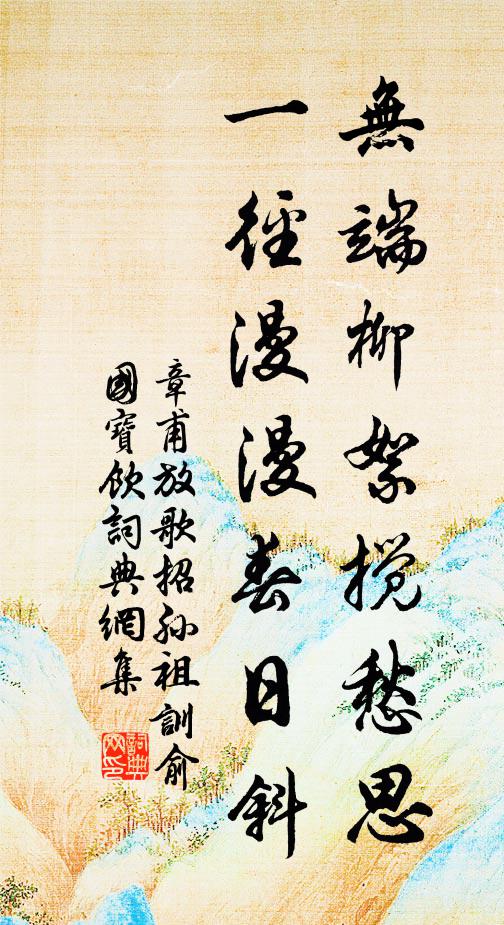 無端柳絮攪愁思
一徑漫漫春日斜
章甫放歌招孫祖訓俞
國寶飲詞典網集
詞典
网印